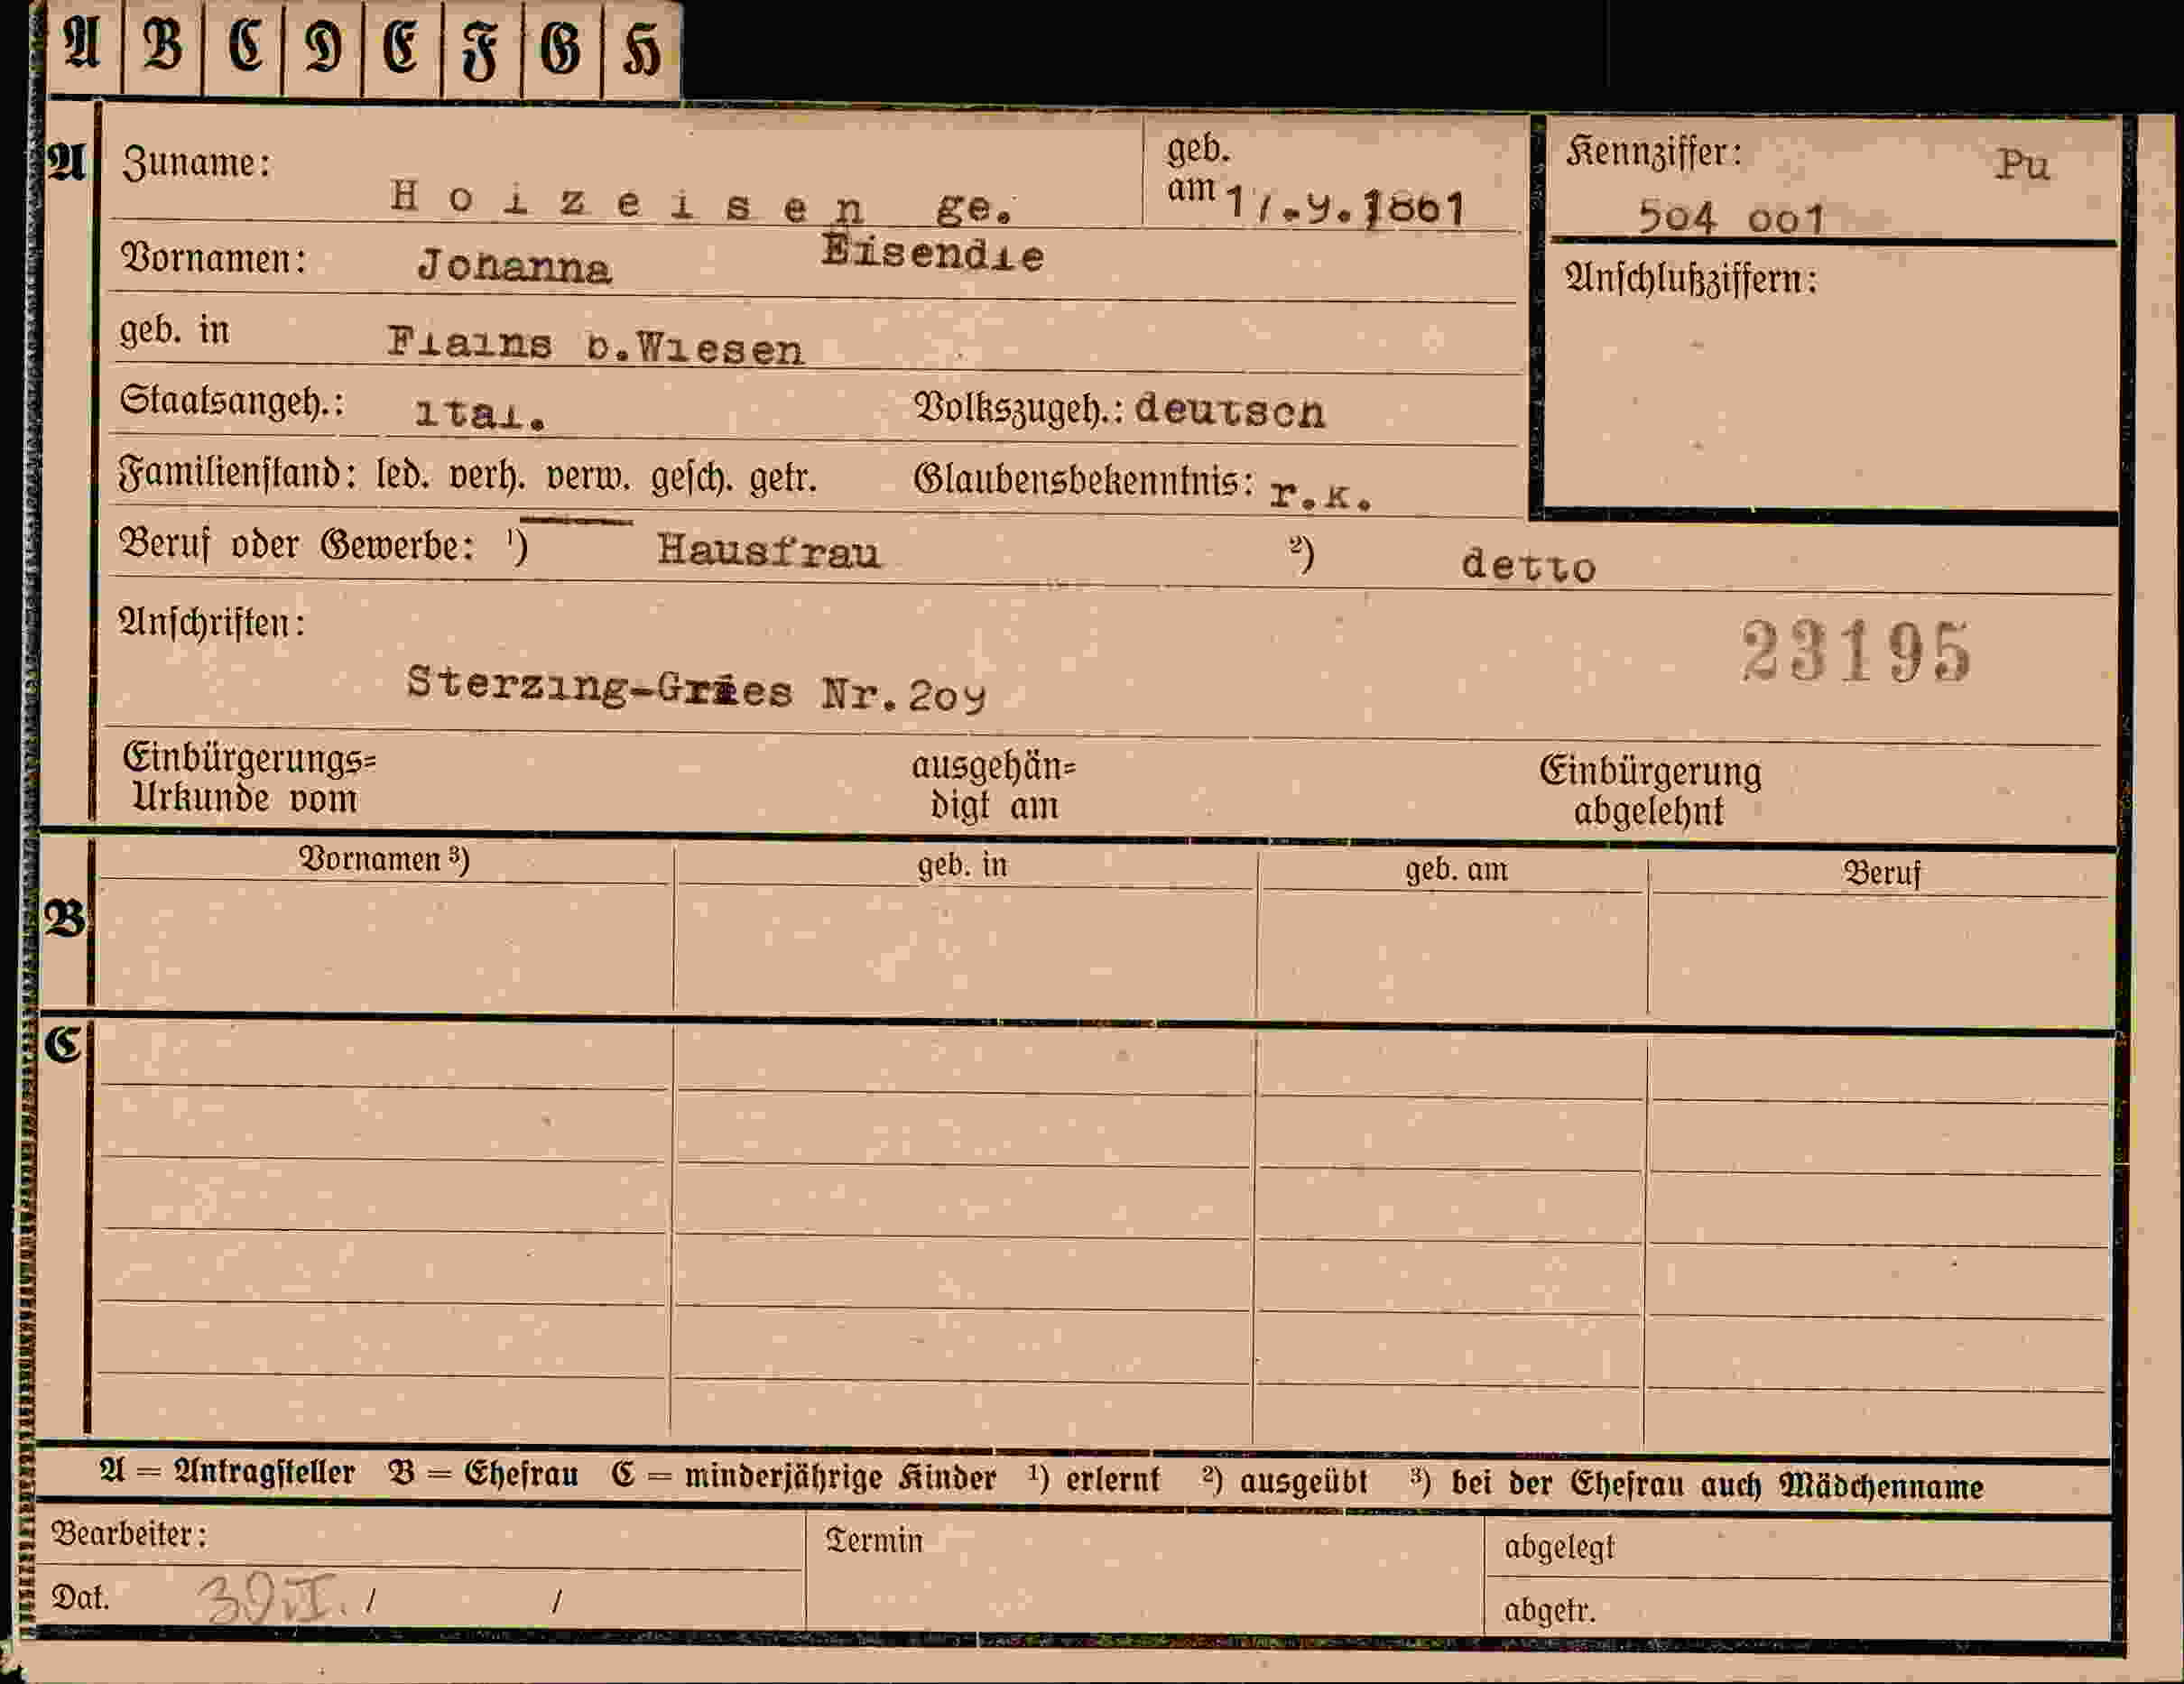 A B C D E F G H
A Zuname: Holzeisen ge. geb. am 17.9.1861 Kennziffer: Pu
504 001
Vornamen: Johanna Eisendle
Anschlußziffern:
geb. in Flains b.Wiesen
Staatsangeh.: ital. Volkszugeh.: deutsch
Familienstand: led. verh. verw. gesch. getr. Glaubensbekenntnis: r.k.
Beruf oder Gewerbe: ¹) Hausfrau ²) detto
Anschriften: 23195
Sterzing-Gries Nr.209
Einbürgerungs= ausgehän= Einbürgerung
Urkunde vom digt am abgelehnt
Vornamen ³) geb. in geb. am Beruf
B
C
A = Antragsteller B = Ehefrau C = minderjährige Kinder ¹) erlernt ²) ausgeübt ³) bei der Ehefrau auch Mädchenname
Bearbeiter: Termin abgelegt
Dat. / / abgetr.